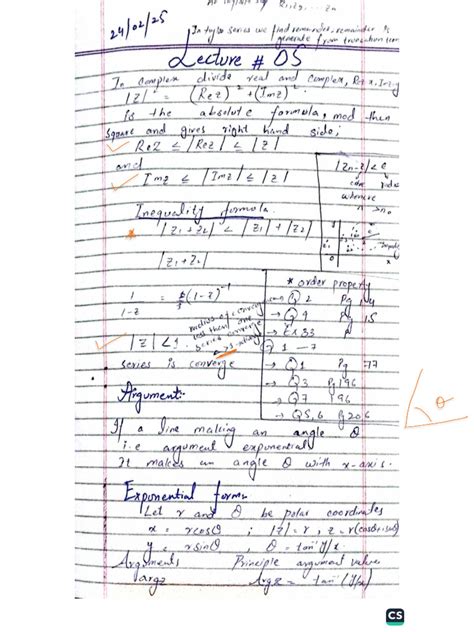 24/02/25
In taylor series we find remainder, remainder is
generate from
Lecture # 05
In complex divide real and complex, Re z x, Im z y
|Z| = (Re z)² + (Im z)²
is the absolute formula, mod then
square and gives right hand side;
Re Z ≤ |Re z| ≤ |z|
and
Im z ≤ |Im z| ≤ |z|
|Zn - z| < ε
whenever
n > n₀
Inequality formula
* |Z₁+Z₂| < |Z₁| + |Z₂|
|Z₁+Z₂|
1/1-z = (1-z)⁻¹
|Z| < 1
series is converge
less than one
series converge
* order property
→ Q 2 Pg 14
→ Q 9 Pg 15
→ Ex 33
→ Q 1 — 7
→ Q1 Pg 77
→ Q3 Pg 196
→ Q7 196
→ Q5,6 Pg 206
θ
Argument:
If a line making an angle θ
i.e argument exponential
It makes an angle θ with x-axis.
Exponential form
Let r and θ be polar coordinates
x = r cosθ ; |Z| = r , z = r(cosθ+i sinθ)
y = r sinθ , θ = tan⁻¹ y/x
Arguments Principle argument values
arg z Arg z = tan⁻¹ (y/x)
CS